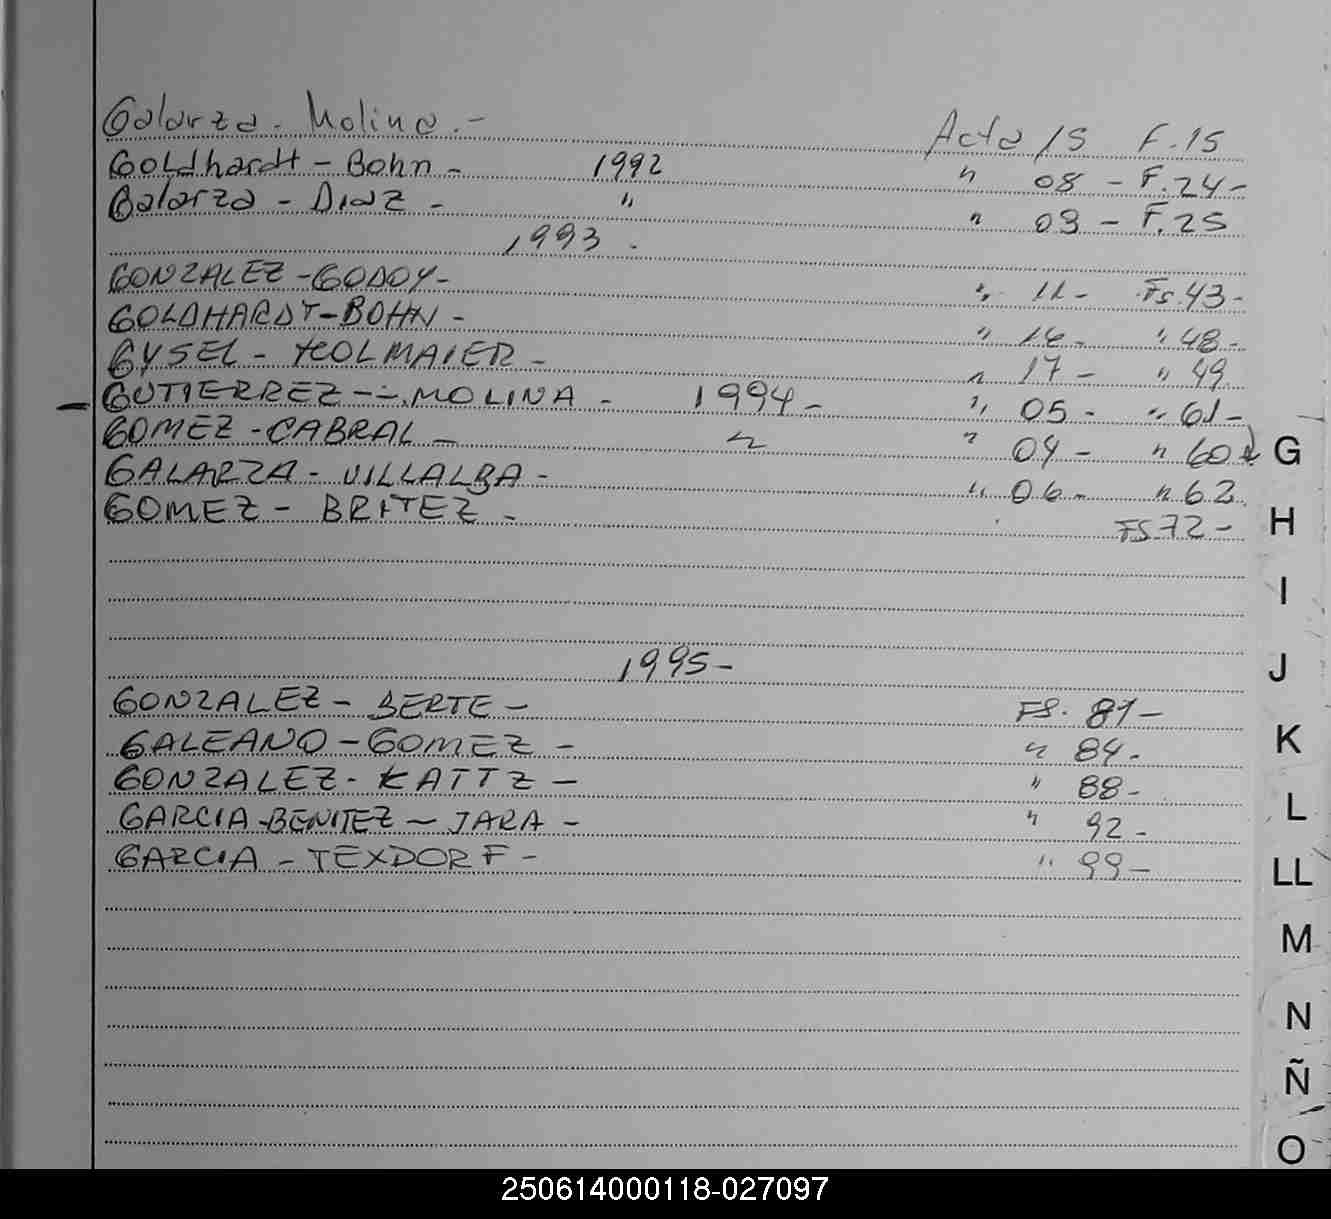 Galarza - Molina.- Acta 15 F. 15
Goldhardt - Bohn - 1992 " 08 - F. 24 -
Galarza - Diaz - " " 09 - F. 25
1993 -
GONZALEZ - GODOY - " 11 - Fs. 43 -
GOLDHARDT - BOHN - " 16 - " 48 -
GYSEL - HOLMAIER - " 17 - " 49
GUTIERREZ - MOLINA - 1994 - " 05 - " 61 -
GOMEZ - CABRAL - " " 04 - " 60
GALARZA - VILLALBA - " 06 - " 62
GOMEZ - BRITEZ - FS 72 -
1995 -
GONZALEZ - BERTE - FS. 81 -
GALEANO - GOMEZ - " 84 -
GONZALEZ - KATTZ - " 88 -
GARCIA - BENITEZ - JARA - " 92 -
GARCIA - TEXDORF - " 99 -
G
H
I
J
K
L
LL
M
N
Ñ
O
250614000118-027097